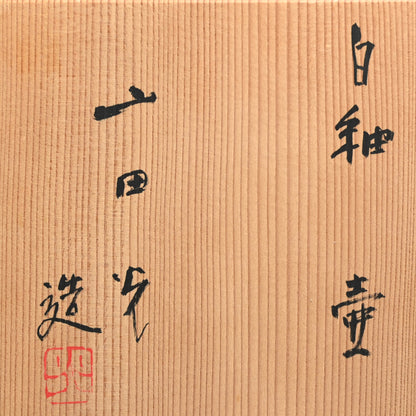 白釉 壷
山田光
造